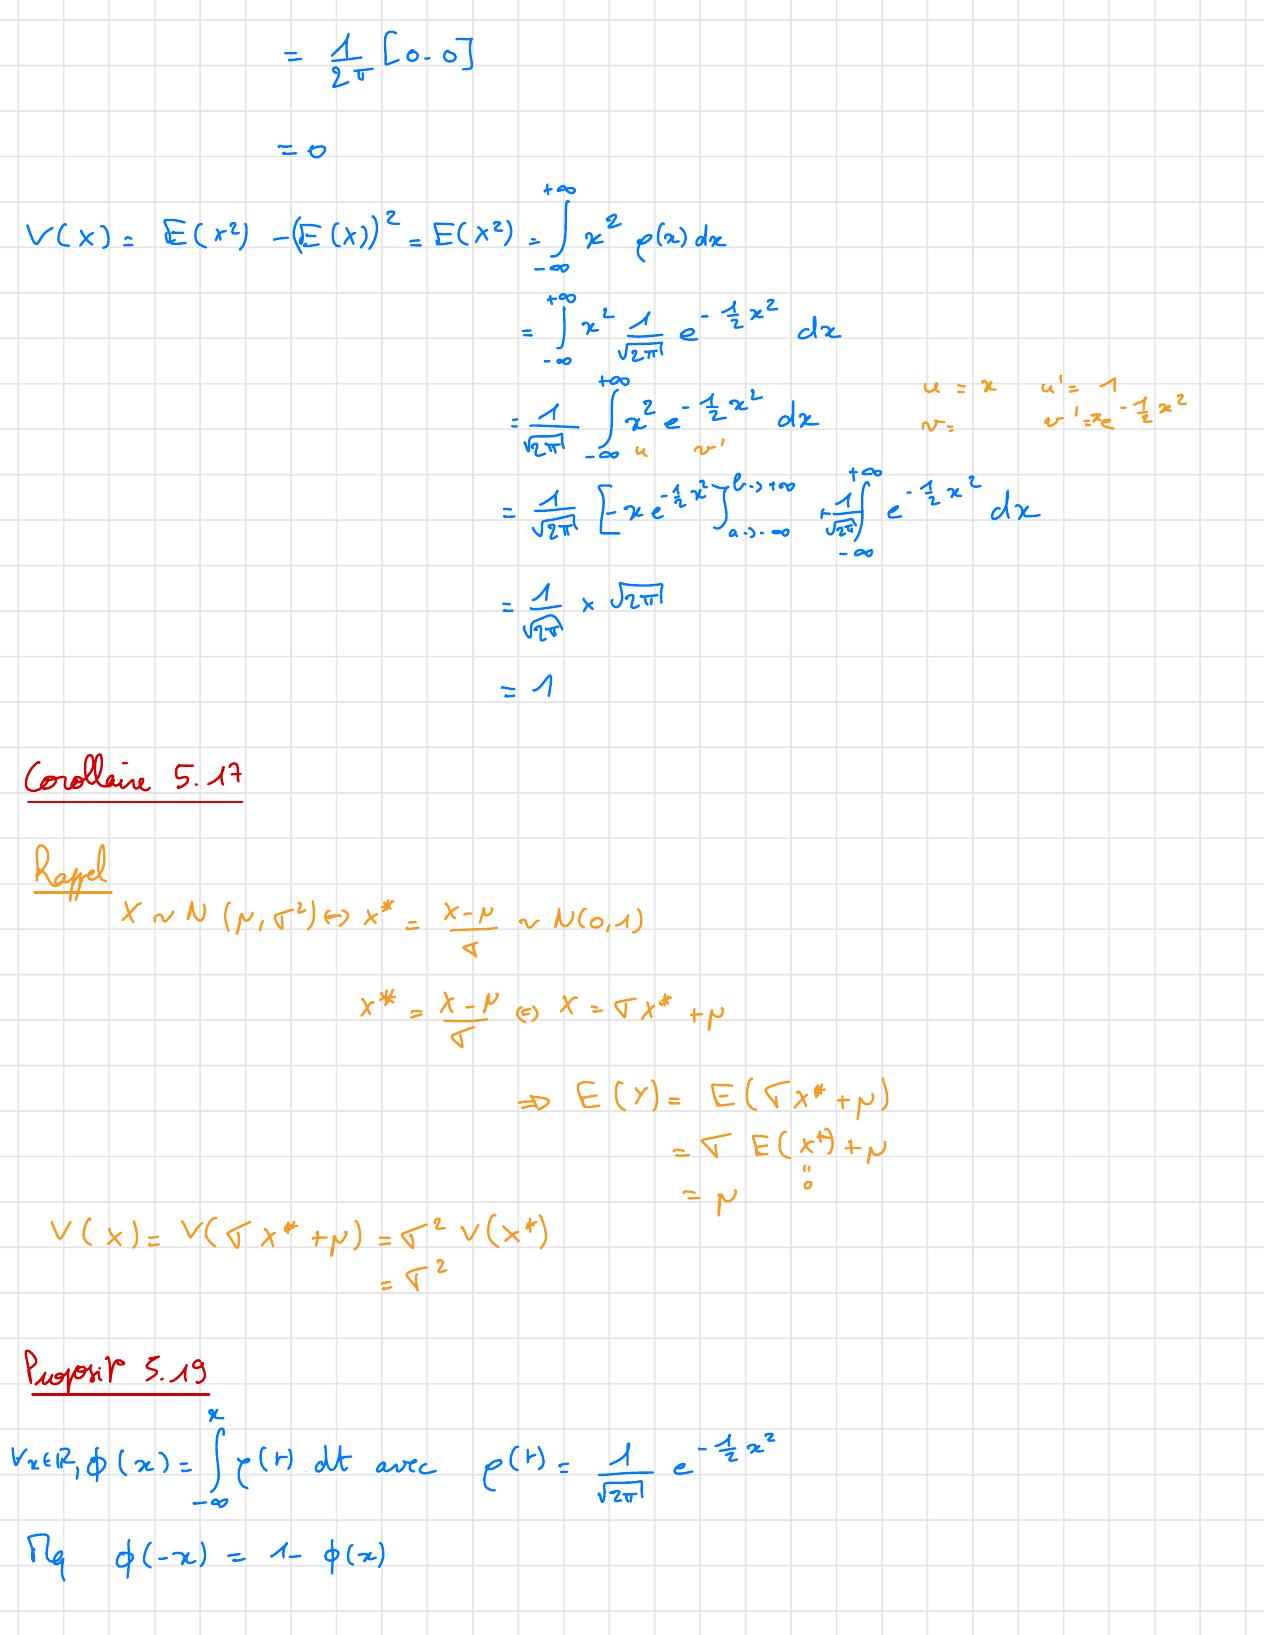 = 1/2π [0-0]
= 0
V(X) = E(X²) - (E(X))² = E(X²) = ∫_{-∞}^{+∞} x² φ(x) dx
= ∫_{-∞}^{+∞} x² 1/√2π e^{-1/2 x²} dx
= 1/√2π ∫_{-∞}^{+∞} x² e^{-1/2 x²} dx u = x u' = 1
u v' v = v' = xe^{-1/2 x²}
= 1/√2π [-x e^{-1/2 x²}]_{a->-∞}^{b->+∞} + 1/√2π ∫_{-∞}^{+∞} e^{-1/2 x²} dx
= 1/√2π × √2π
= 1
Corollaire 5.17
Rappel
X ~ N(μ, σ²) ⇔ X* = (X-μ)/σ ~ N(0,1)
X* = (X-μ)/σ ⇔ X = σX* + μ
⇒ E(Y) = E(σX* + μ)
= σ E(X*) + μ
" 0
= μ
V(X) = V(σX* + μ) = σ² V(X*)
= σ²
Proposit° 5.19
∀x∈ℝ, ϕ(x) = ∫_{-∞}^{x} φ(t) dt avec φ(t) = 1/√2π e^{-1/2 x²}
Mq ϕ(-x) = 1 - ϕ(x)